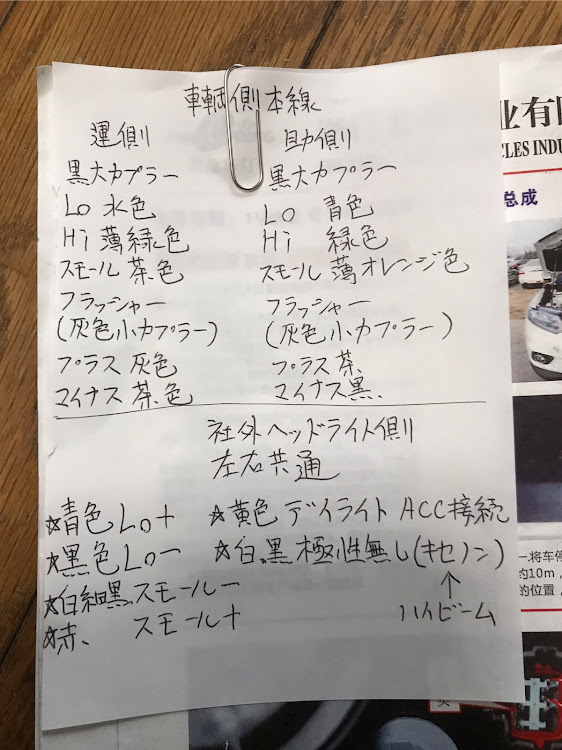 車輌側本線
運側
黒大カプラー
Lo 水色
Hi 薄緑色
スモール 茶色
フラッシャー
(灰色小カプラー)
プラス 灰色
マイナス 茶色
助側
黒大カプラー
Lo 青色
Hi 緑色
スモール 薄オレンジ色
フラッシャー
(灰色小カプラー)
プラス 茶
マイナス 黒
社外ヘッドライト側
左右共通
☆青色 Lo+
☆黒色 Lo−
☆白細黒 スモール−
☆赤、 スモール+
☆黄色 デイライト ACC接続
☆白、黒 極性無し(キセノン)
↑
ハイビーム
业有
CLES INDU
总成
一.将车停
约10m，
的位置，